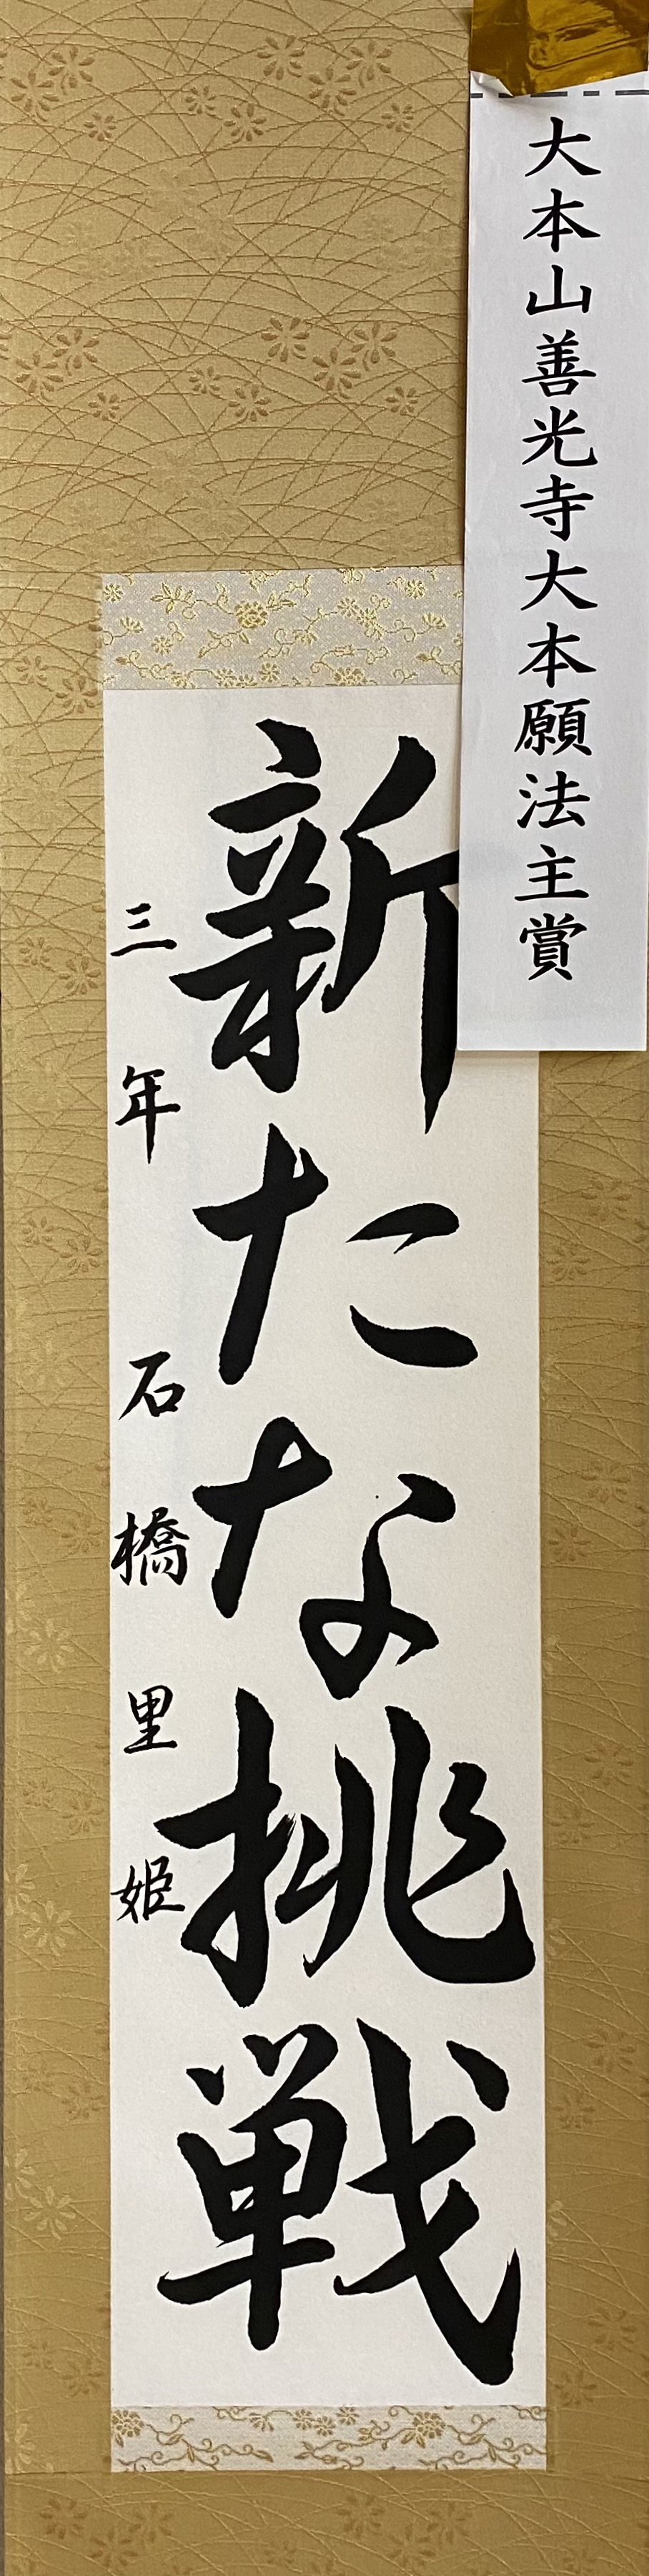 大本山善光寺大本願法主賞
新たな挑戦
三年 石橋里姫